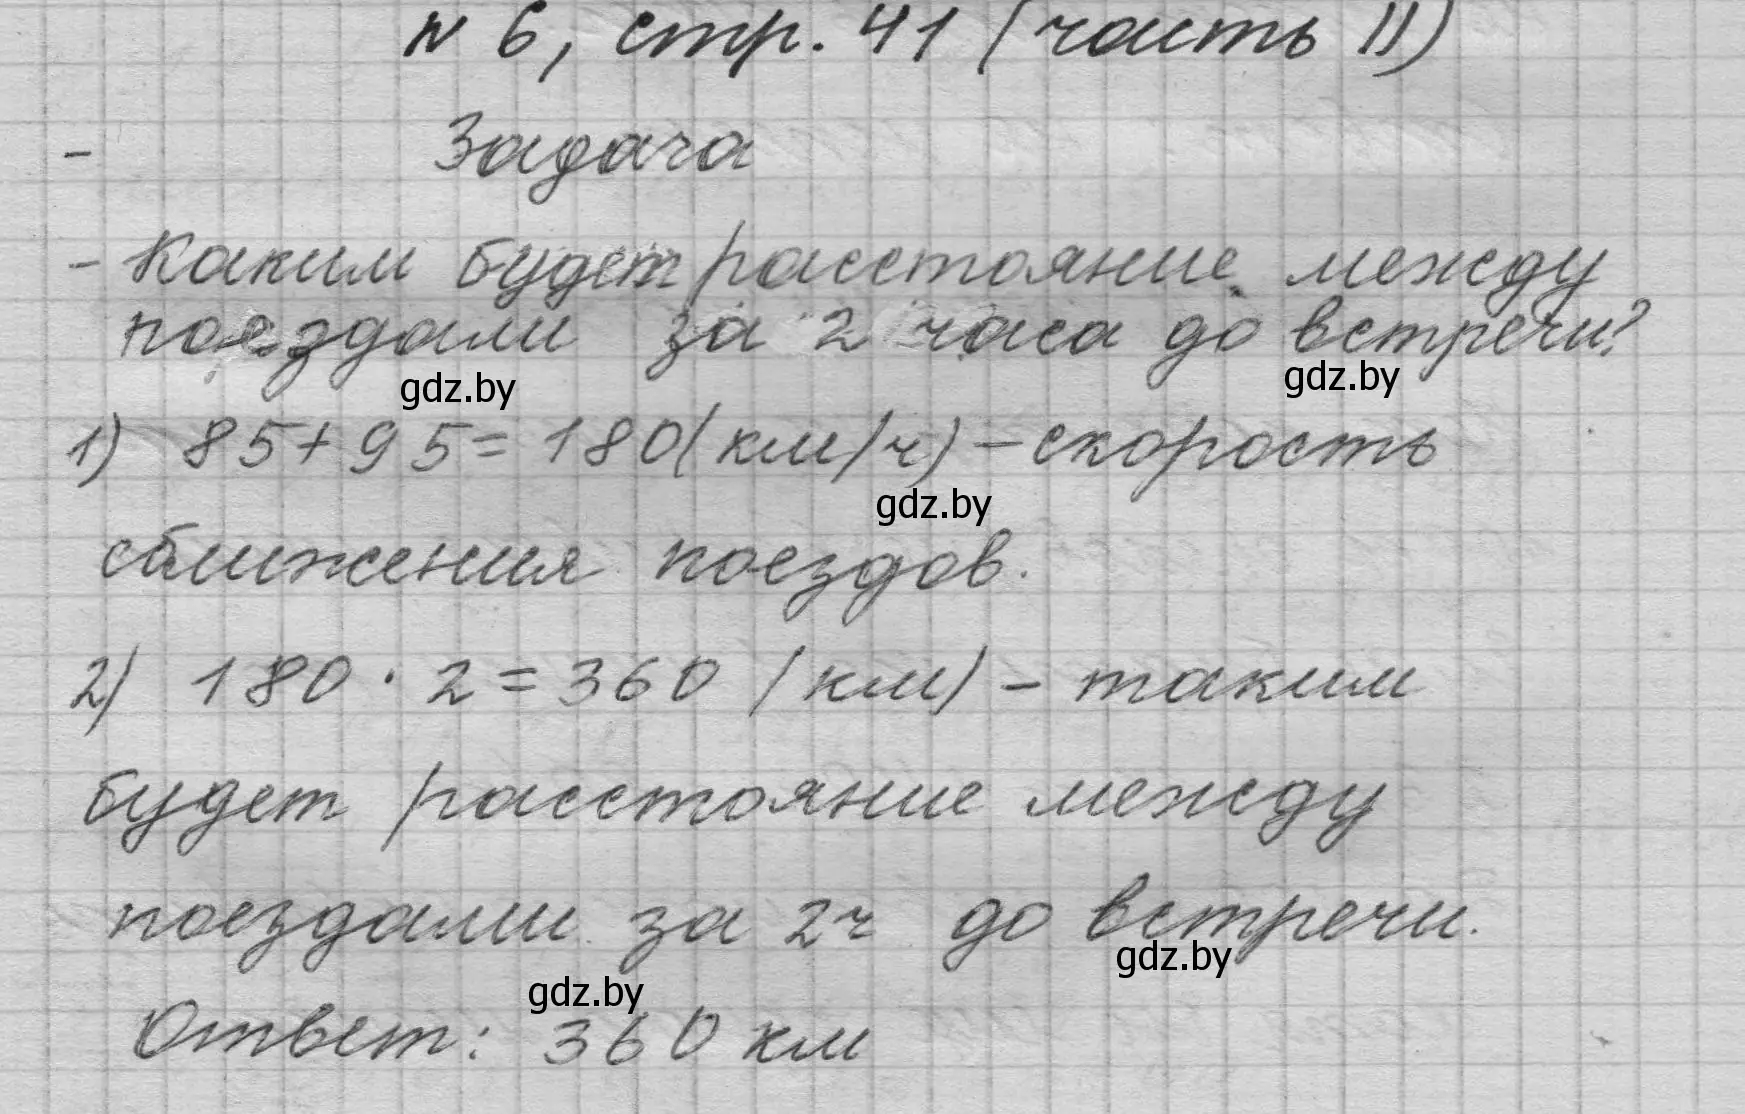 № 6, стр. 41 (часть II)
-
Задача
- Каким будет расстояние между
поездами за 2 часа до встречи?
gdz.by
gdz.by
1) 85+95=180(км/ч) - скорость
gdz.by
сближения поездов.
2) 180 · 2 = 360 (км) - таким
будет расстояние между
поездами за 2ч до встречи.
gdz.by
gdz.by
Ответ: 360 км